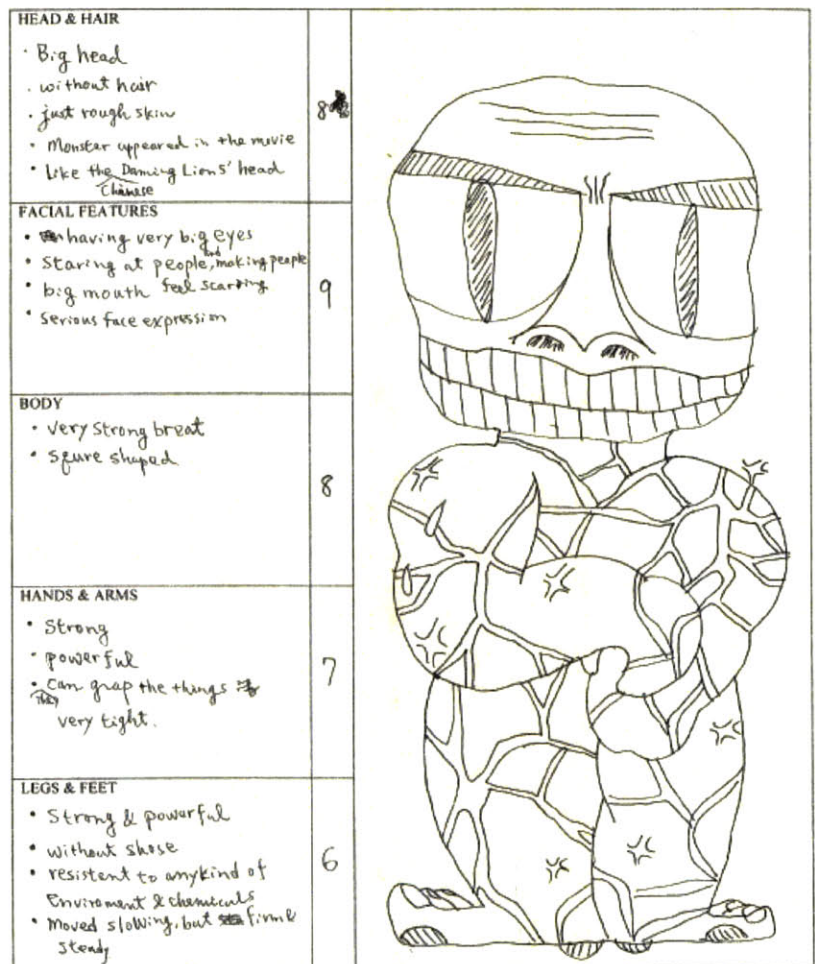 HEAD & HAIR
· Big head
· without hair
· just rough skin
8
· Monster appeared in the movie
· Like the Daming Lions' head
Chinese
FACIAL FEATURES
· having very big eyes
· Staring at people, and making people
· big mouth feel scarring
· serious face expression
9
BODY
· very strong breat
· squre shaped
8
HANDS & ARMS
· Strong
· powerful
· They can grap the things
very tight.
7
LEGS & FEET
· Strong & powerful
· without shose
· resistent to anykind of
Enviroment & chemicals
· Moved slowing, but firm &
steady
6